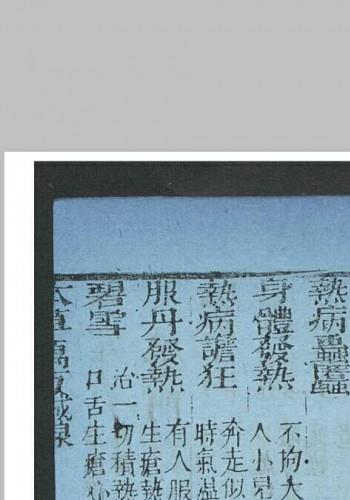 熱病蟲䘌
身體發熱
不拘大
人小兒
熱病譫狂
奔走似
時氣溫
服丹發熱
有人服
生瘡熱
碧雪
治一切積熱
口舌生瘡心